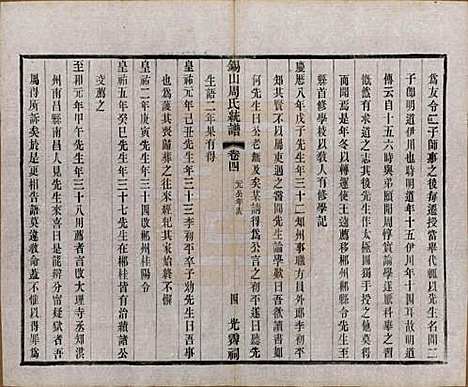 為友令二子師事之後每遷授當舉代輒以先生名聞二
子即明道伊川也時明道年十五伊川年十四耳故明道
傳云自十五六時與弟頤聞周茂叔論學遂厭科舉之習
慨然有求道之志其後先生作太極圖獨手授之他莫得
而聞焉是冬以轉運使王逵薦移郴州郴縣令
縣首修學校以教人有修學記
慶曆八年戊子先生年三十二知州事職方員外郎李初平
知其賢不以屬吏遇之嘗聞先生論學歎曰吾欲讀書如
何先生曰公老無及矣某請得為公言之初平遂日聽先
生語二年果有得
皇祐二年庚寅先生年三十四改郴州桂陽令
皇祐三年辛卯先生年三十五初平卒子幼先生曰吾事
也為護其喪歸葬之往來經紀其家始終不懈
皇祐五年癸巳先生年三十七先生在郴桂皆有治績諸公
交薦之
至和元年甲午先生年三十八用薦者言改大理寺丞知洪
州南昌縣南昌人見先生來喜曰是能辯分寧獄者吾
屬得所訴矣於是更相告語莫違教命蓋不惟以得罪為
錫山周氏統譜
卷四
元公年表
四
光霽祠